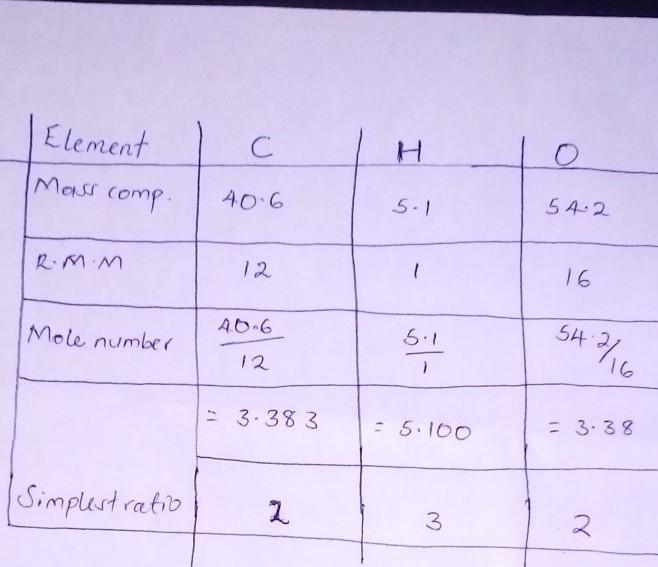 Element C H O
Mass comp. 40.6 5.1 54.2
R.M.M 12 1 16
Mole number 40.6/12 5.1/1 54.2/16
= 3.383 = 5.100 = 3.38
Simplest ratio 2 3 2